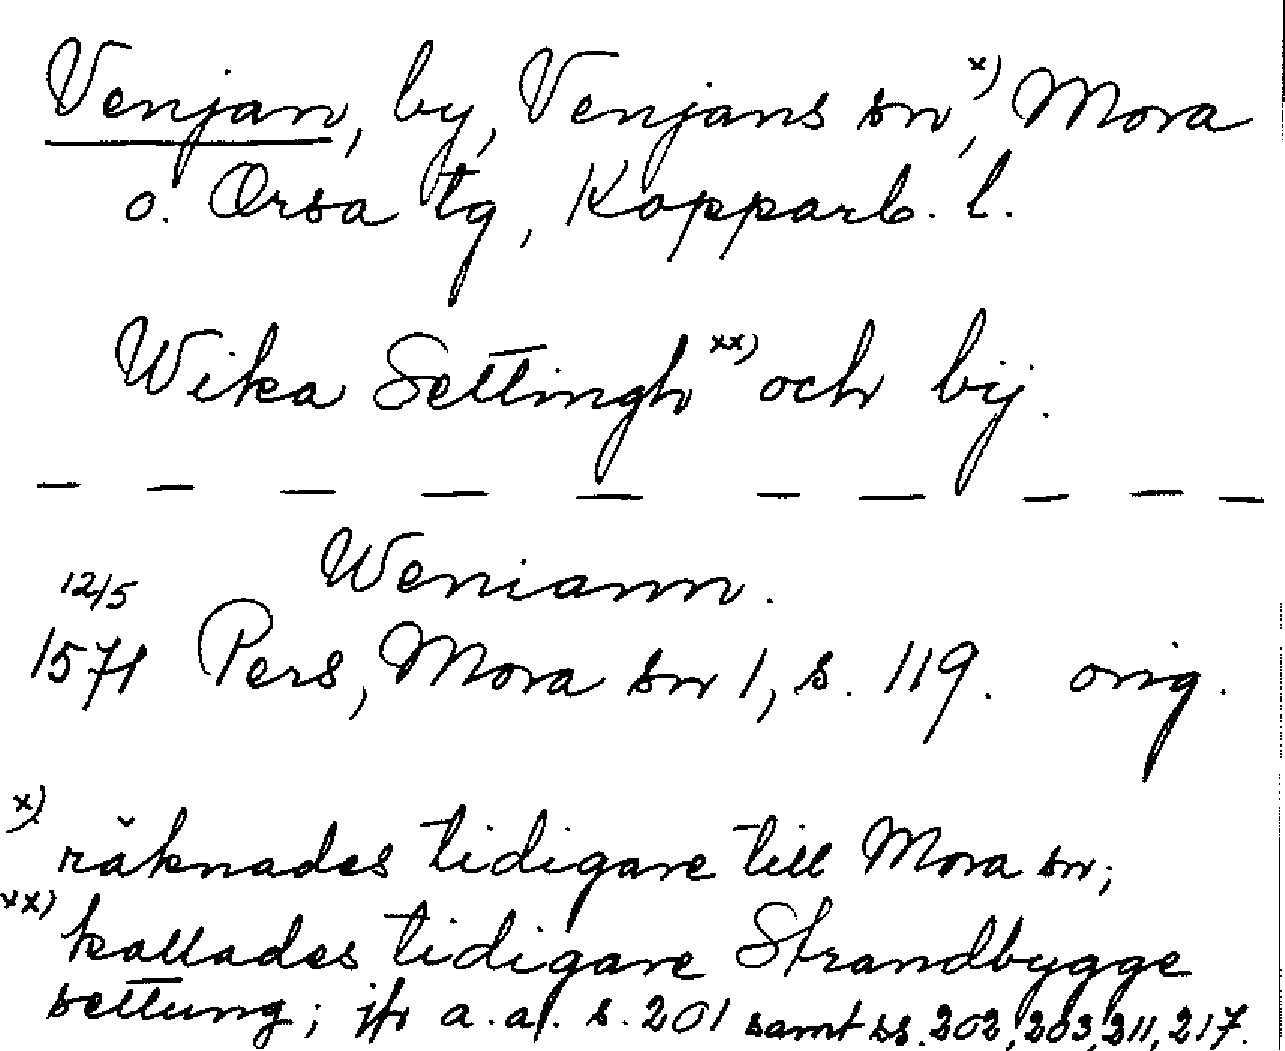 Venjan, by, Venjans sn x), Mora
o. Orsa tg, Kopparb. l.
Wika Settingh xx) och bij.
— — — — — — — — — —
Weniann.
12/5
1571 Pers, Mora sn 1, s. 119. orig.
x) räknades tidigare till Mora sn;
xx) kallades tidigare Strandbygge
settung; jfr a.a. s. 201 samt ss. 202, 203, 211, 217.